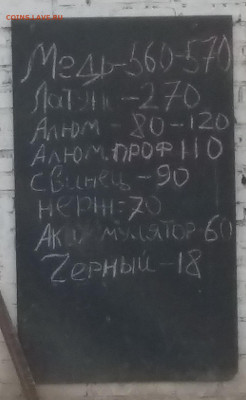 COINS.LAVE.RU
Медь-560-570
Латунь-270
Алюм-80-120
Алюм.ПРОФ 110
Свинец-90
НЕРЖ=70
Аккумулятор-60
Черный-18